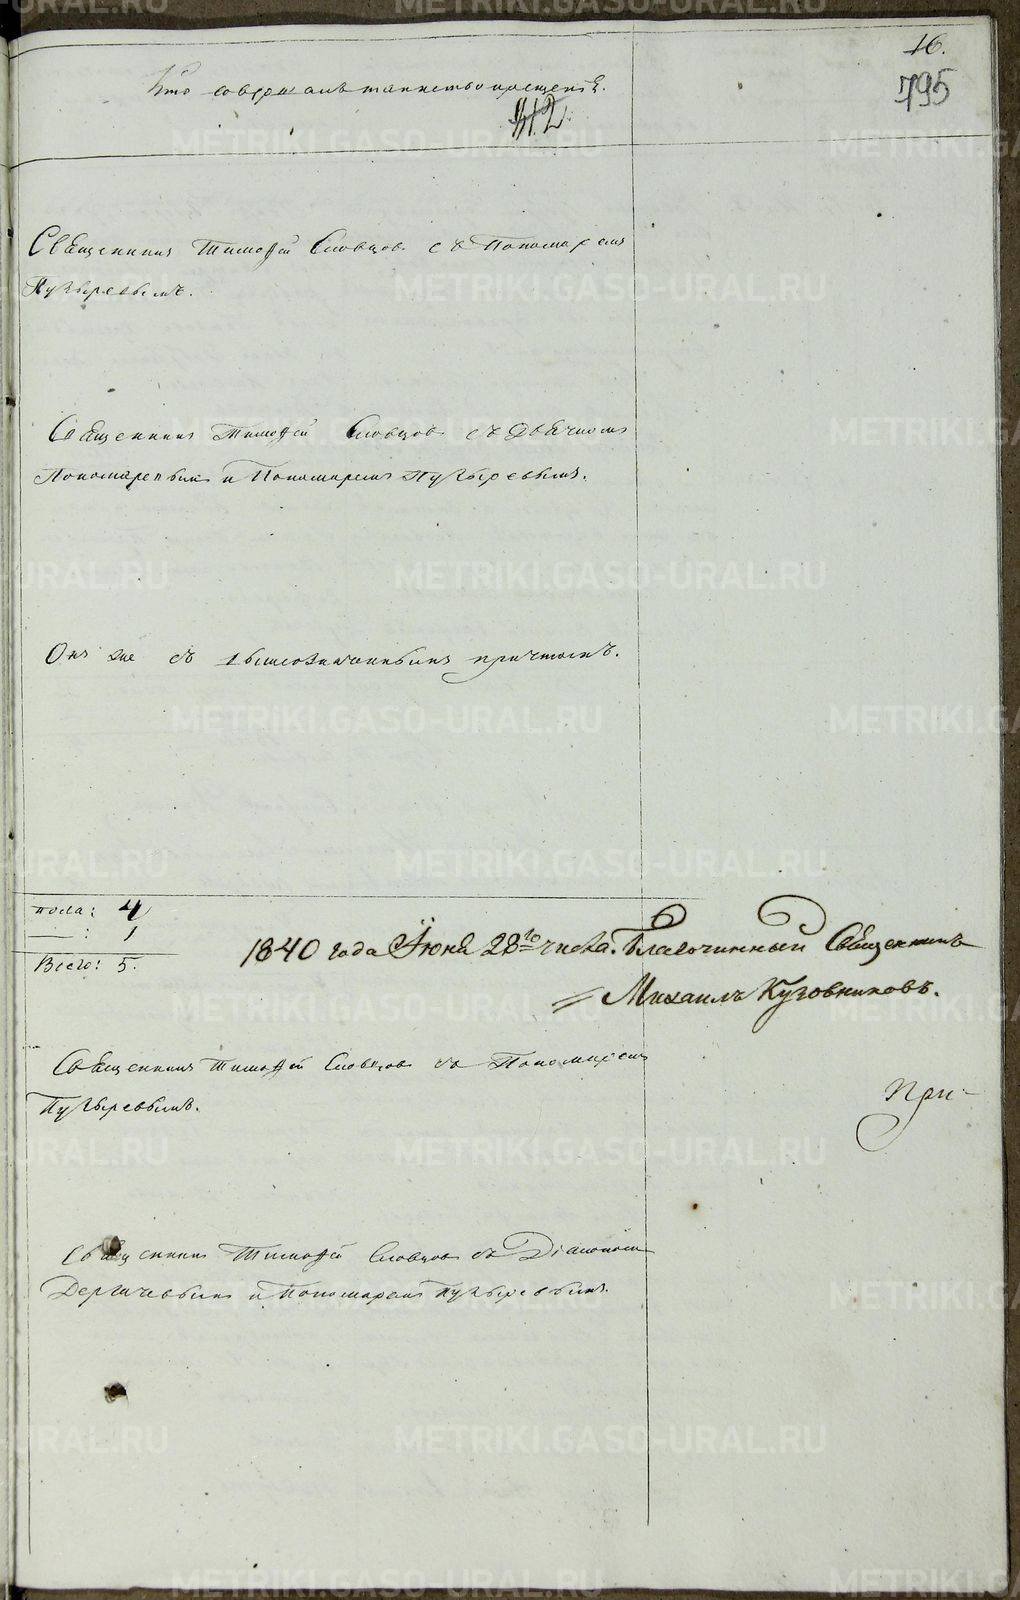 16.
795
Кто совершалъ таинство крещенія.
412.
Священникъ Тимофей Словцов съ Пономаремъ
Пузыревымъ.
Священникъ Тимофей Словцовъ съ Дьячкомъ
Пономаревымъ и Пономаремъ Пузыревымъ.
Онъ же съ вышеозначеннымъ причтомъ.
пола: 4
— : 1
Всего: 5.
1840 года Іюня 28го числа. Благочинный Священникъ
Михаилъ Кузовниковъ.
Священникъ Тимофей Словцовъ съ Пономаремъ
Пузыревымъ.
При-
Священникъ Тимофей Словцовъ съ Діакономъ
Дергачевымъ и Пономаремъ Пузыревымъ.
METRIKI.GASO-URAL.RU